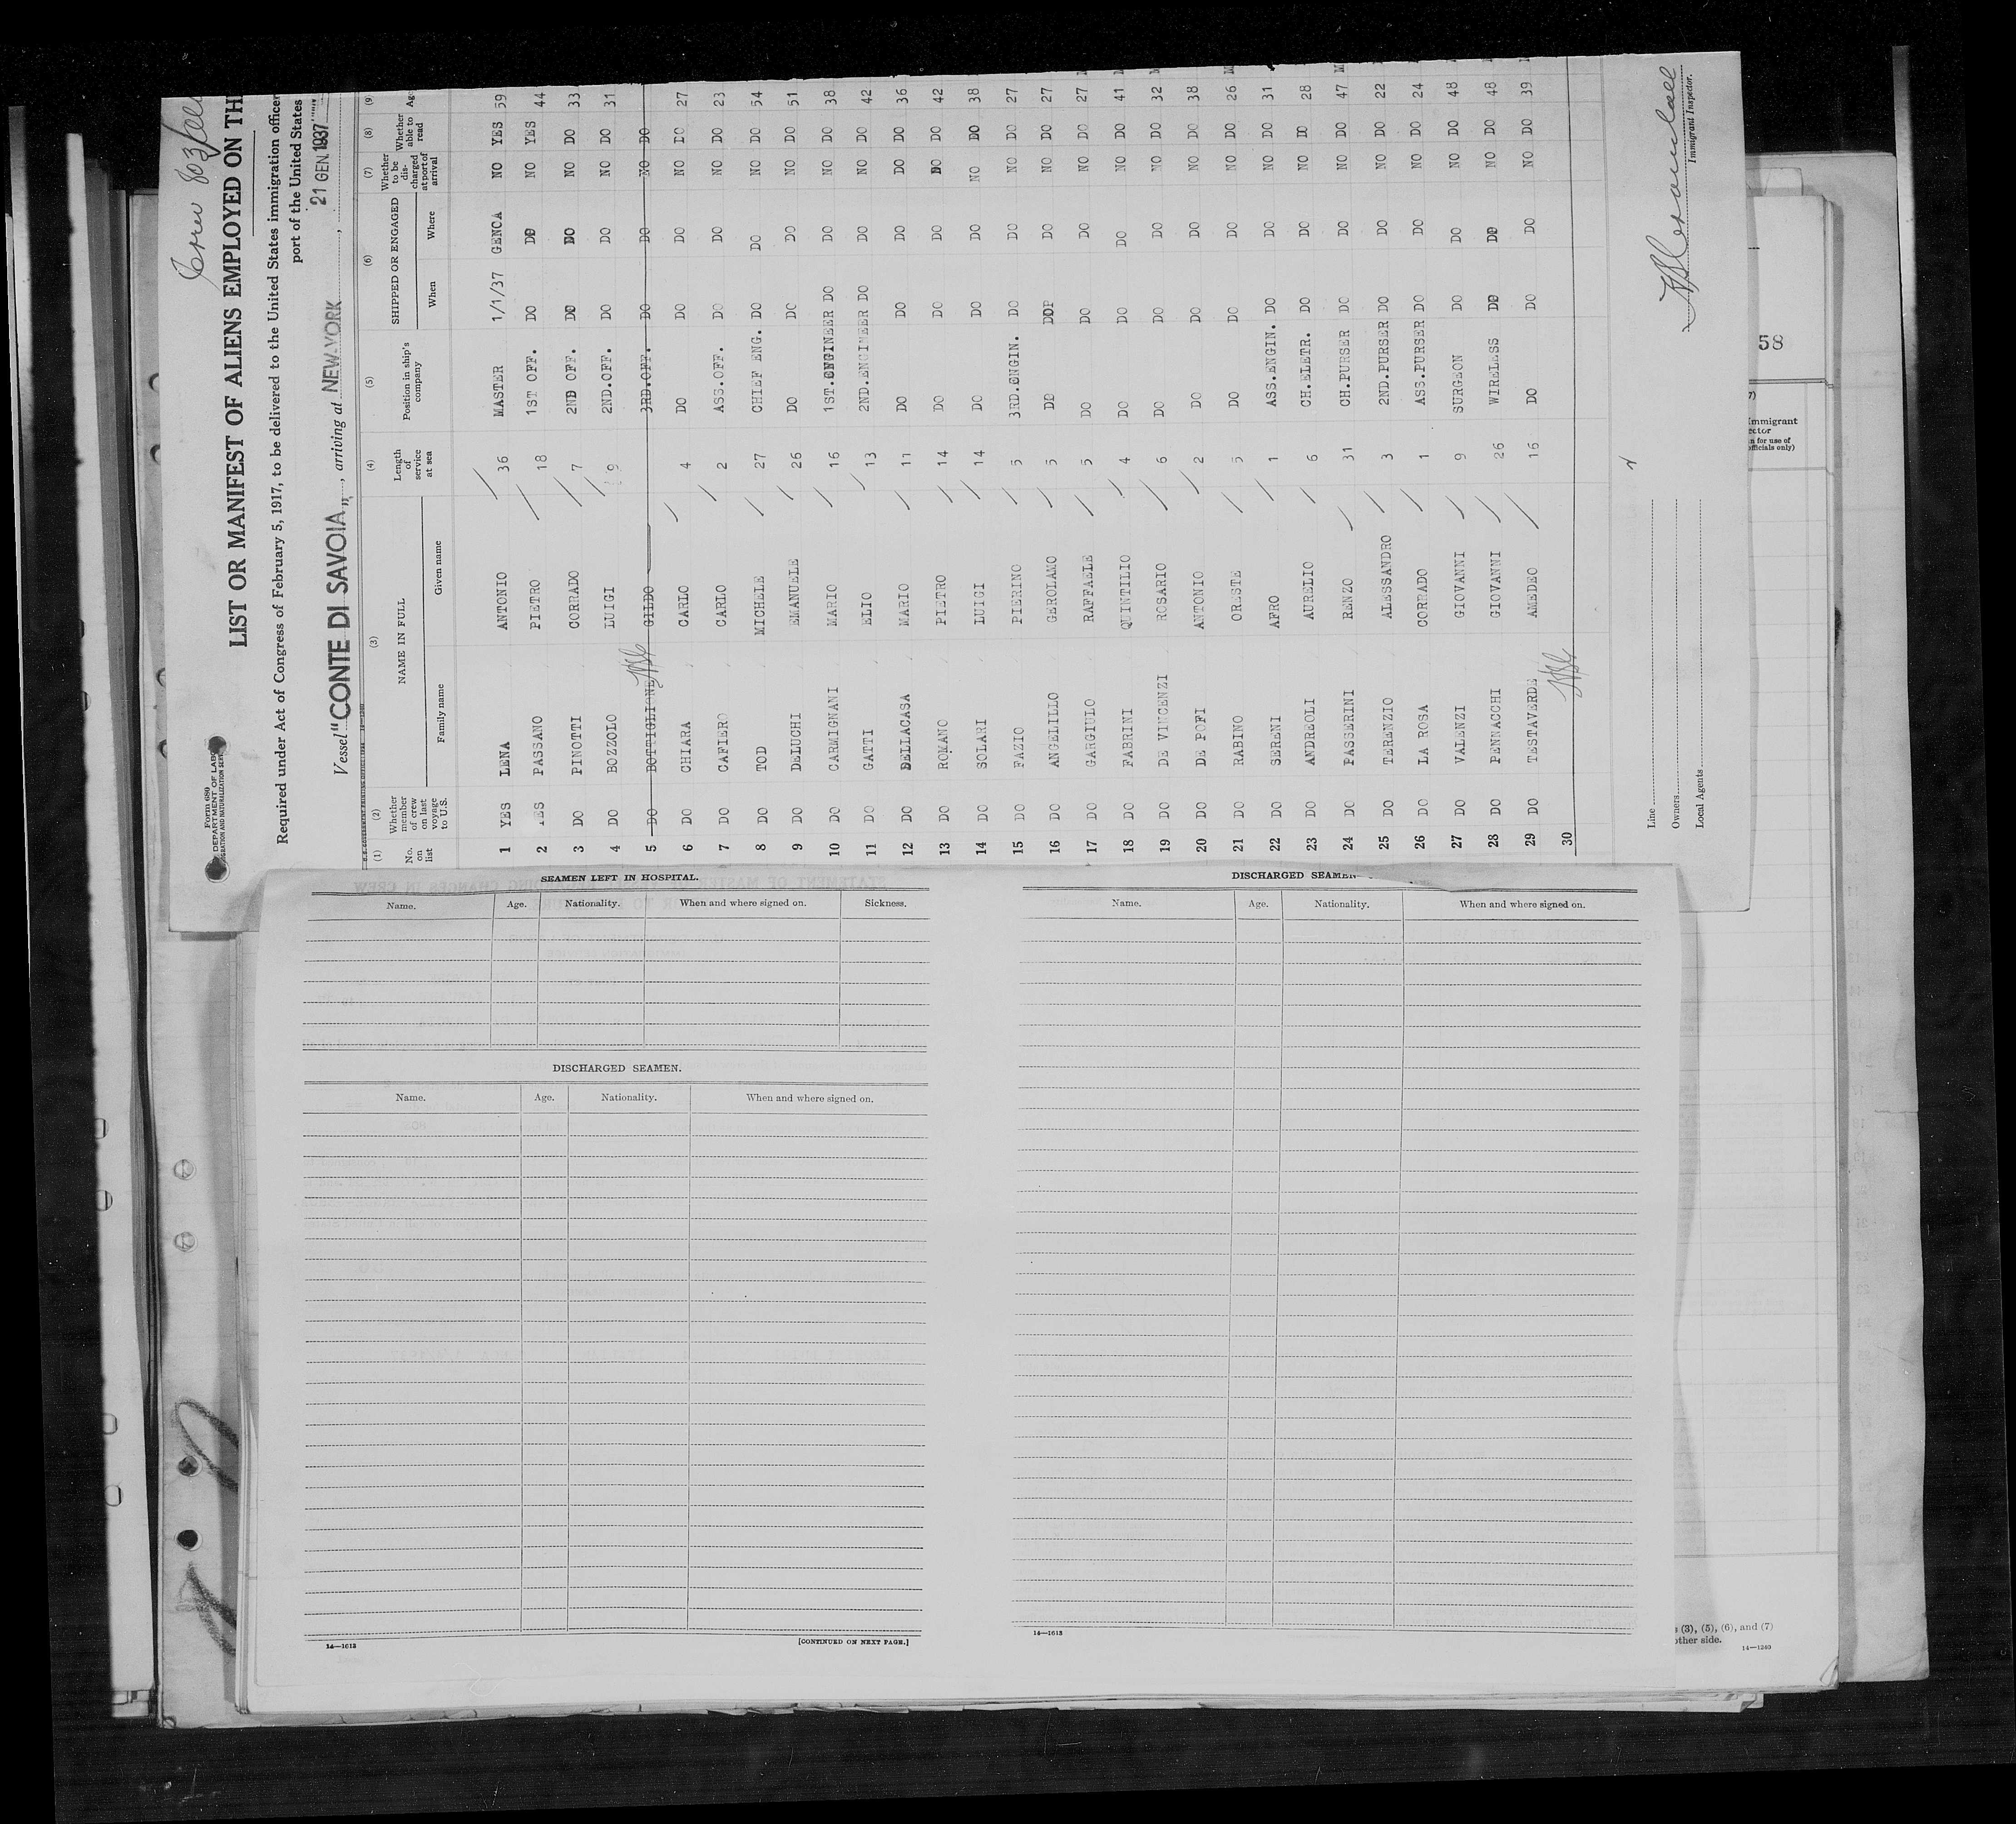 Form 680
U. S. DEPARTMENT OF LABOR
IMMIGRATION AND NATURALIZATION SERVICE
Crew
LIST OR MANIFEST OF ALIENS EMPLOYED ON TH
Required under Act of Congress of February 5, 1917, to be delivered to the United States immigration officer
port of the United States
Vessel "CONTE DI SAVOIA", arriving at NEW-YORK, 21 GEN. 1937
(1) (2) (3) (4) (5) (6) (7) (8) (9)
No. on list Whether member of crew on last voyage to U.S. NAME IN FULL Length of service at sea Position in ship's company SHIPPED OR ENGAGED Whether to be discharged at port of arrival Whether able to read Age
Family name Given name When Where
1 YES LENA ANTONIO 36 MASTER 1/1/37 GENOA NO YES 59
2 YES PASSANO PIETRO 18 1ST OFF. DO DO NO YES 44
3 DO PINOTTI CORRADO 7 2ND OFF. DO DO NO DO 33
4 DO BOZZOLO LUIGI 9 2ND.OFF. DO DO NO DO 31
5 DO BOTTIGLIONE GILDO 3RD.OFF. DO DO NO DO
6 DO CHIARA CARLO 4 DO DO DO NO DO 27
7 DO CAFIERO CARLO 2 ASS.OFF. DO DO NO DO 23
8 DO TOD MICHELE 27 CHIEF ENG. DO DO NO DO 54
9 DO DELUCHI EMANUELE 26 DO DO DO NO DO 51
10 DO CARMIGNANI MARIO 16 1ST.ENGINEER DO DO NO DO 38
11 DO GATTI ELIO 13 2ND.ENGINEER DO DO NO DO 42
12 DO DELLACASA MARIO 11 DO DO DO DO DO 36
13 DO ROMANO PIETRO 14 DO DO DO DO DO 42
14 DO SOLARI LUIGI 14 DO DO DO NO DO 38
15 DO FAZIO PIERINO 5 3RD.ENGIN. DO DO NO DO 27
16 DO ANGELILLO GEROLAMO 5 DO DO DO NO DO 27
17 DO GARGIULO RAFFAELE 5 DO DO DO NO DO 27
18 DO FABRINI QUINTILIO 4 DO DO DO NO DO 41
19 DO DE VINCENZI ROSARIO 6 DO DO DO NO DO 32
20 DO DE POFI ANTONIO 2 DO DO DO NO DO 38
21 DO RABINO ORESTE 5 DO DO DO NO DO 26
22 DO SERENI AFRO 1 ASS.ENGIN. DO DO NO DO 31
23 DO ANDREOLI AURELIO 6 CH.ELETR. DO DO NO DO 28
24 DO PASSERINI RENZO 31 CH.PURSER DO DO NO DO 47
25 DO TERENZIO ALESSANDRO 3 2ND.PURSER DO DO NO DO 22
26 DO LA ROSA CORRADO 1 ASS.PURSER DO DO NO DO 24
27 DO VALENZI GIOVANNI 9 SURGEON DO DO NO DO 48
28 DO PENNACCHI GIOVANNI 26 WIRELESS DO DO NO DO 48
29 DO TESTAVERDE AMEDEO 16 DO DO DO NO DO 39
30
Line
Owners
Local Agents
Immigrant Inspector.
SEAMEN LEFT IN HOSPITAL.
Name. Age. Nationality. When and where signed on. Sickness.
DISCHARGED SEAMEN.
Name. Age. Nationality. When and where signed on.
14—1613 [CONTINUED ON NEXT PAGE.]
DISCHARGED SEAMEN
Name. Age. Nationality. When and where signed on.
14—1613
58
Immigrant
(3), (5), (6), and (7)
other side.
14—1240